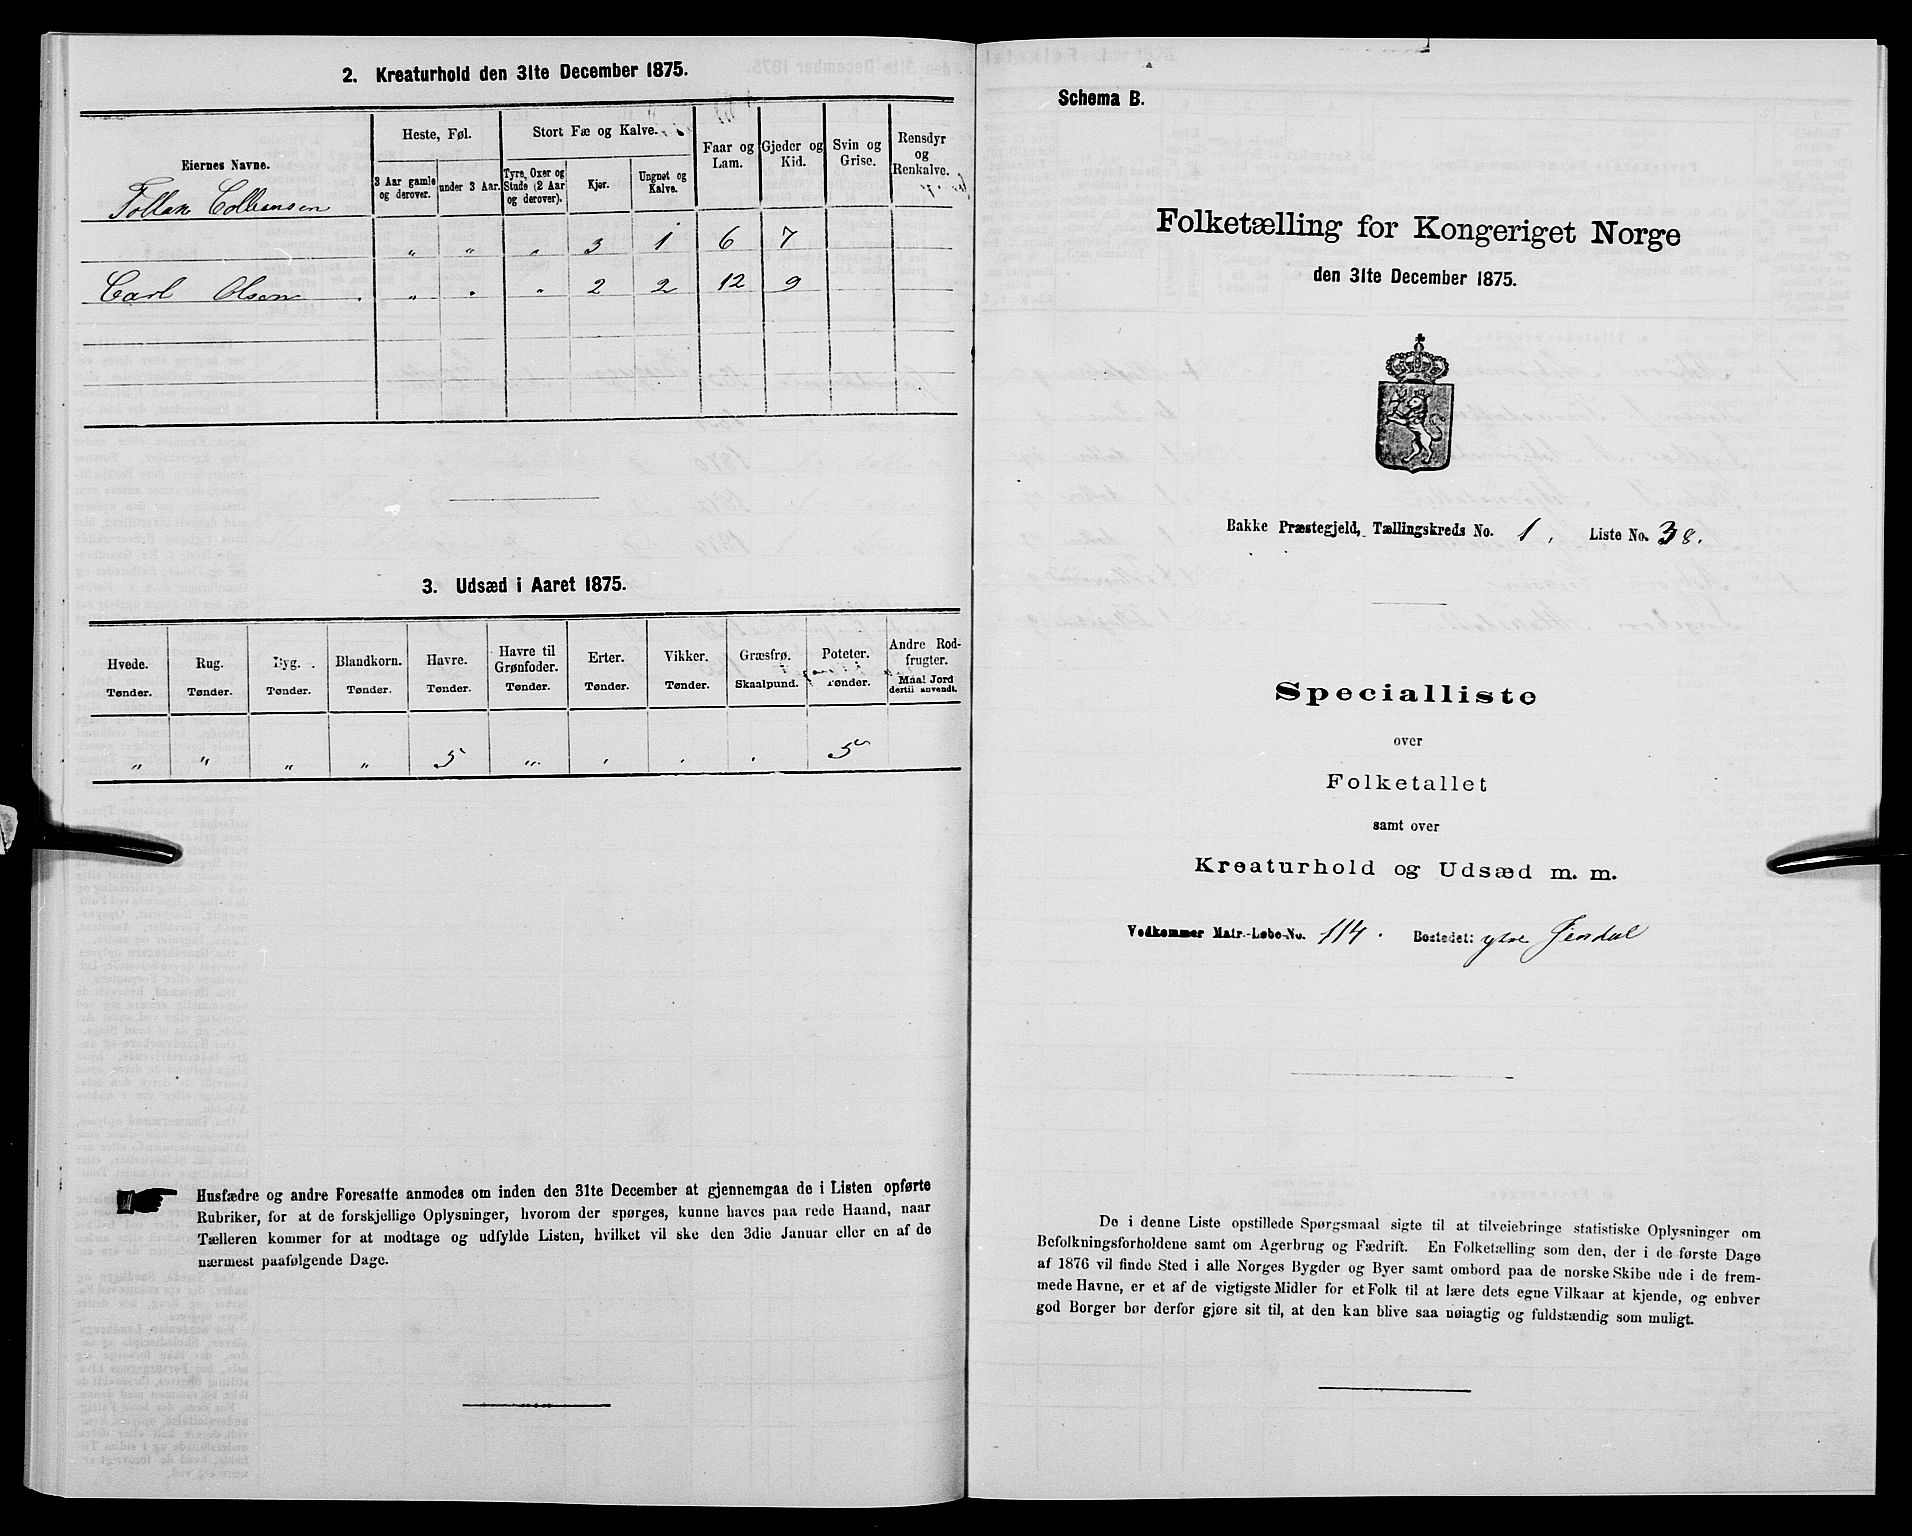 2. Kreaturhold den 31te December 1875.
Eiernes Navne.
Heste, Føl.
Stort Fæ og Kalve.
Faar og Lam.
Gjeder og Kid.
Svin og Grise.
Rensdyr og Renkalve.
3 Aar gamle og derover.
under 3 Aar.
Tyre, Oxer og Stude (2 Aar og derover).
Kjør.
Ungnøt og Kalve.
Tollak Colbensen
„ „ „ 3 1 6 7
Carl Olsen „ „ „ 2 2 12 9
3. Udsæd i Aaret 1875.
Hvede. Rug. Byg. Blandkorn. Havre. Havre til Grønfoder. Erter. Vikker. Græsfrø. Poteter. Andre Rodfrugter.
Tønder. Tønder. Tønder. Tønder. Tønder. Tønder. Tønder. Tønder. Skaalpund. Tønder. Maal Jord dertil anvendt.
„ „ „ „ 5 „ „ „ „ 5
Husfædre og andre Foresatte anmodes om inden den 31te December at gjennemgaa de i Listen opførte
Rubriker, for at de forskjellige Oplysninger, hvorom der spørges, kunne haves paa rede Haand, naar
Tælleren kommer for at modtage og udfylde Listen, hvilket vil ske den 3die Januar eller en af de
nærmest paafølgende Dage.
Schema B.
Folketælling for Kongeriget Norge
den 31te December 1875.
Bakke Præstegjeld, Tællingskreds No. 1, Liste No. 38.
Specialliste
over
Folketallet
samt over
Kreaturhold og Udsæd m. m.
Vedkommer Matr.-Løbe-No. 114. Bostedet: ytre Jerdal
De i denne Liste opstillede Spørgsmaal sigte til at tilveiebringe statistiske Oplysninger om
Befolkningsforholdene samt om Agerbrug og Fædrift. En Folketælling som den, der i de første Dage
af 1876 vil finde Sted i alle Norges Bygder og Byer samt ombord paa de norske Skibe ude i de frem-
mede Havne, er et af de vigtigste Midler for et Folk til at lære dets egne Vilkaar at kjende, og enhver
god Borger bør derfor gjøre sit til, at den kan blive saa nøiagtig og fuldstændig som muligt.